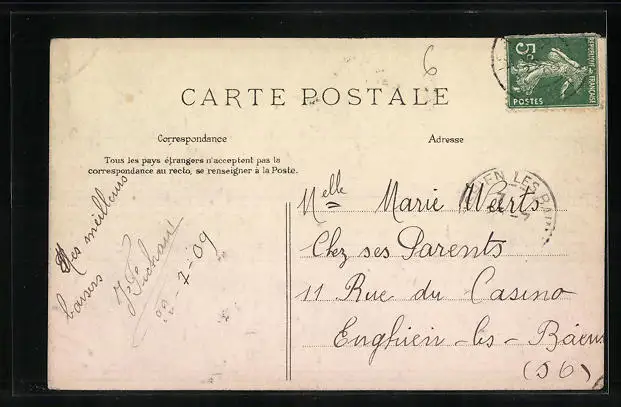 6
5c
REPUBLIQUE FRANÇAISE
POSTES
CARTE POSTALE
Correspondance
Adresse
Tous les pays étrangers n'acceptent pas la
correspondance au recto, se renseigner à la Poste.
Mes meilleurs
baisers
7-09
EN LES BAINS
Melle Marie Weerts
Chez ses Parents
11 Rue du Casino
Enghien-les-Bains
(S O)